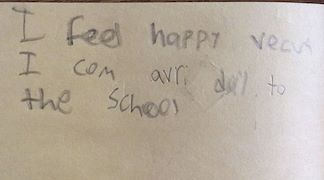 I feel happy vecus
I com avri dall to
the School